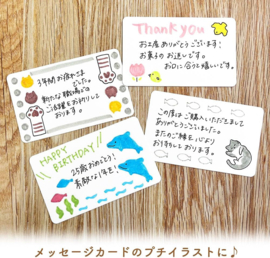 Thank you
お土産ありがとうございます!
お菓子のお返しです。
お口に合うと嬉しいです。
3年間お疲れさま
でした。
新たな職場でも
ご活躍をお祈りして
おります。
この度はご購入いただきまして
ありがとうございました。
またのご縁を心より
お待ちしております。
HAPPY
BIRTHDAY!
25歳おめでとう!
素敵な1年を!
メッセージカードのプチイラストに♪